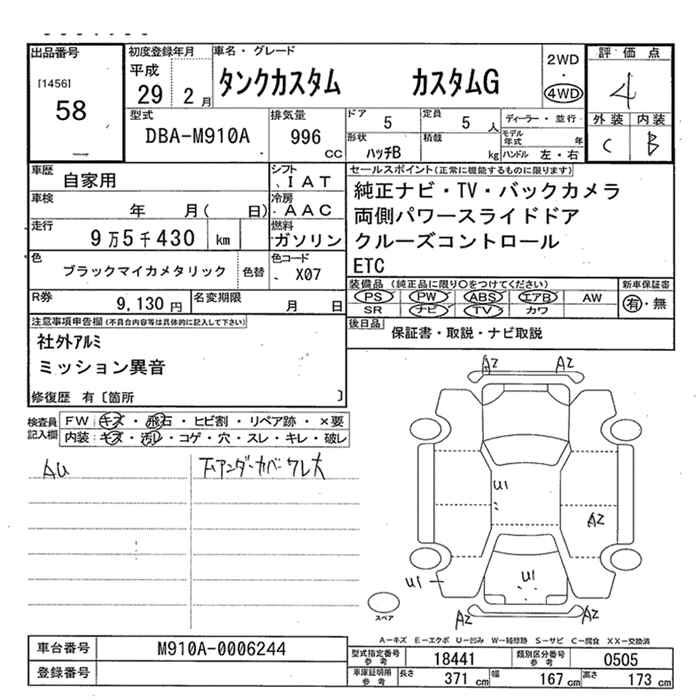 出品番号
[1456]
58
初度登録年月
平成
29 2 月
車名・グレード
タンクカスタム カスタムG
2WD
・
4WD
評価点
4
外装 内装
C B
型式
DBA-M910A
排気量
996 CC
ドア 5
定員 5 人
ディーラー・並行
形状 ハッチB
積載 kg
モデル年式 年
ハンドル 左・右
車歴 自家用
シフト IAT
車検 年 月( 日)
冷房 AAC
走行 9万5千430 km
燃料 ガソリン
色 ブラックマイカメタリック 色替
色コード X07
R券 9,130 円
名変期限 月 日
セールスポイント(正常に機能するものに限ります)
純正ナビ・TV・バックカメラ
両側パワースライドドア
クルーズコントロール
ETC
装備品 (純正品に限り○をつけてください)
新車保証書
PS PW ABS エアB AW
SR ナビ TV カワ
有・無
後日品 保証書・取説・ナビ取説
注意事項申告欄(不具合内容等は具体的に記入して下さい)
社外アルミ
ミッション異音
修復歴 有〔箇所 〕
検査員記入欄
FW キズ・飛石・ヒビ割・リペア跡・×要
内装:キズ・汚れ・コゲ・穴・スレ・キレ・破レ
AU
下アンダーカバーワレ大
A2 A2
U1
A2
U1
U1
A2 A2
スペア
A-キズ E-エクボ U-凹み W-補修跡 S-サビ C-腐食 XX-交換済
車台番号 M910A-0006244
登録番号
型式指定番号 参考 18441
類別区分番号 参考 0505
車庫証明用 参考 長さ 371 cm 幅 167 cm 高さ 173 cm